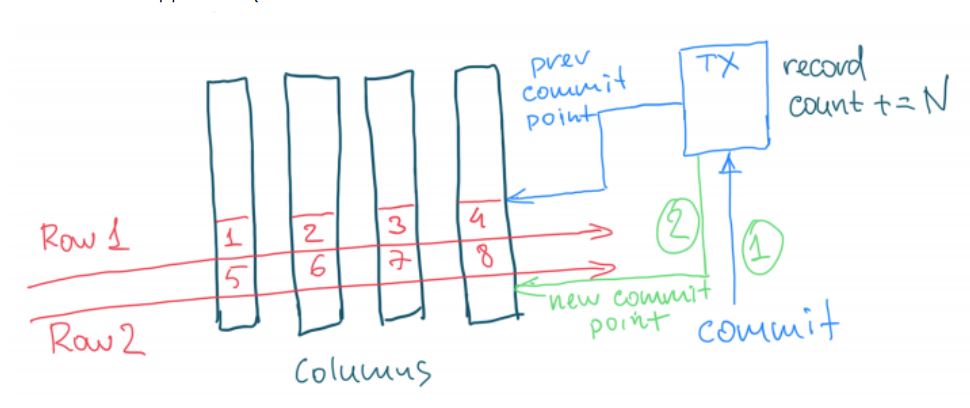 prev
commit
point
TX
record
count += N
Row 1
1 2 3 4
5 6 7 8
Row 2
2
1
new commit
point
commit
Columns